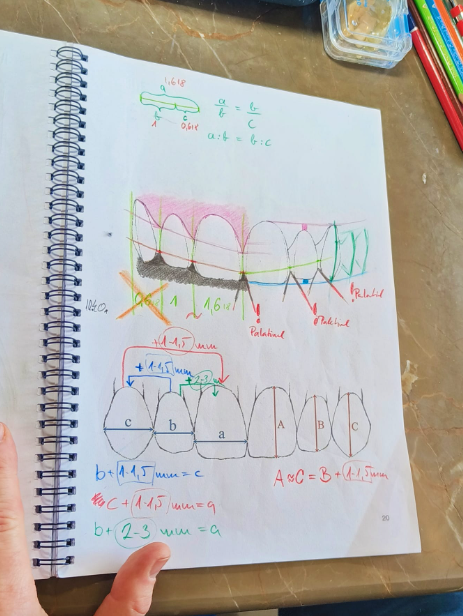 1,618
a
b c
1 0,618
a/b = b/c
a:b = b:c
0,6 1 1,618
! ! !
Palatinal Palatinal Palatinal
+1-1,5 mm
+1-1,5 mm
+2-3 m
c b a A B C
b + 1-1,5 mm = c
C + 1-1,5 mm = a
A ≈ C = B + 1-1,5 mm
b + 2-3 mm = a
20